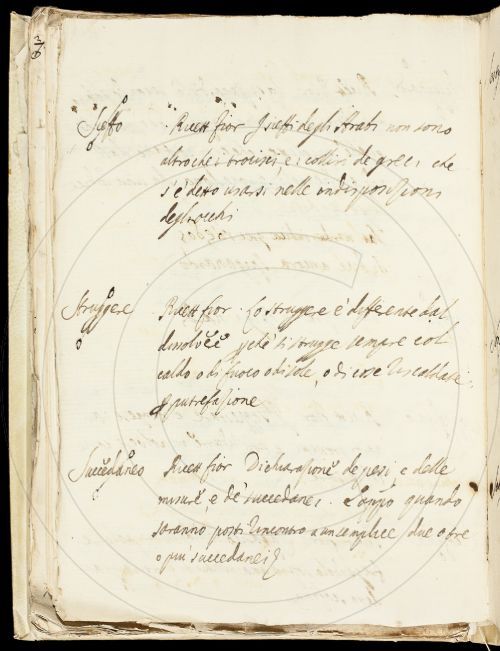 Sieffo Ricett fior I sieffi degli Arabi non sono
altro che i trocisci, e i collirij de greci che
s'è detto usarsi nelle indisposizioni
degli occhi
Struggere Ricett fior. Lo struggere è differente dal
dissolvere pchè si strugge sempre col
caldo o di fuoco o di sole, o di cose riscaldate
p putrefazione
Succedaneo Ricett fior Dichiarazione de pesi, e delle
misure, e de' succedanei. quando
saranno posti rincontro a un semplice due o tre
o più succedanei